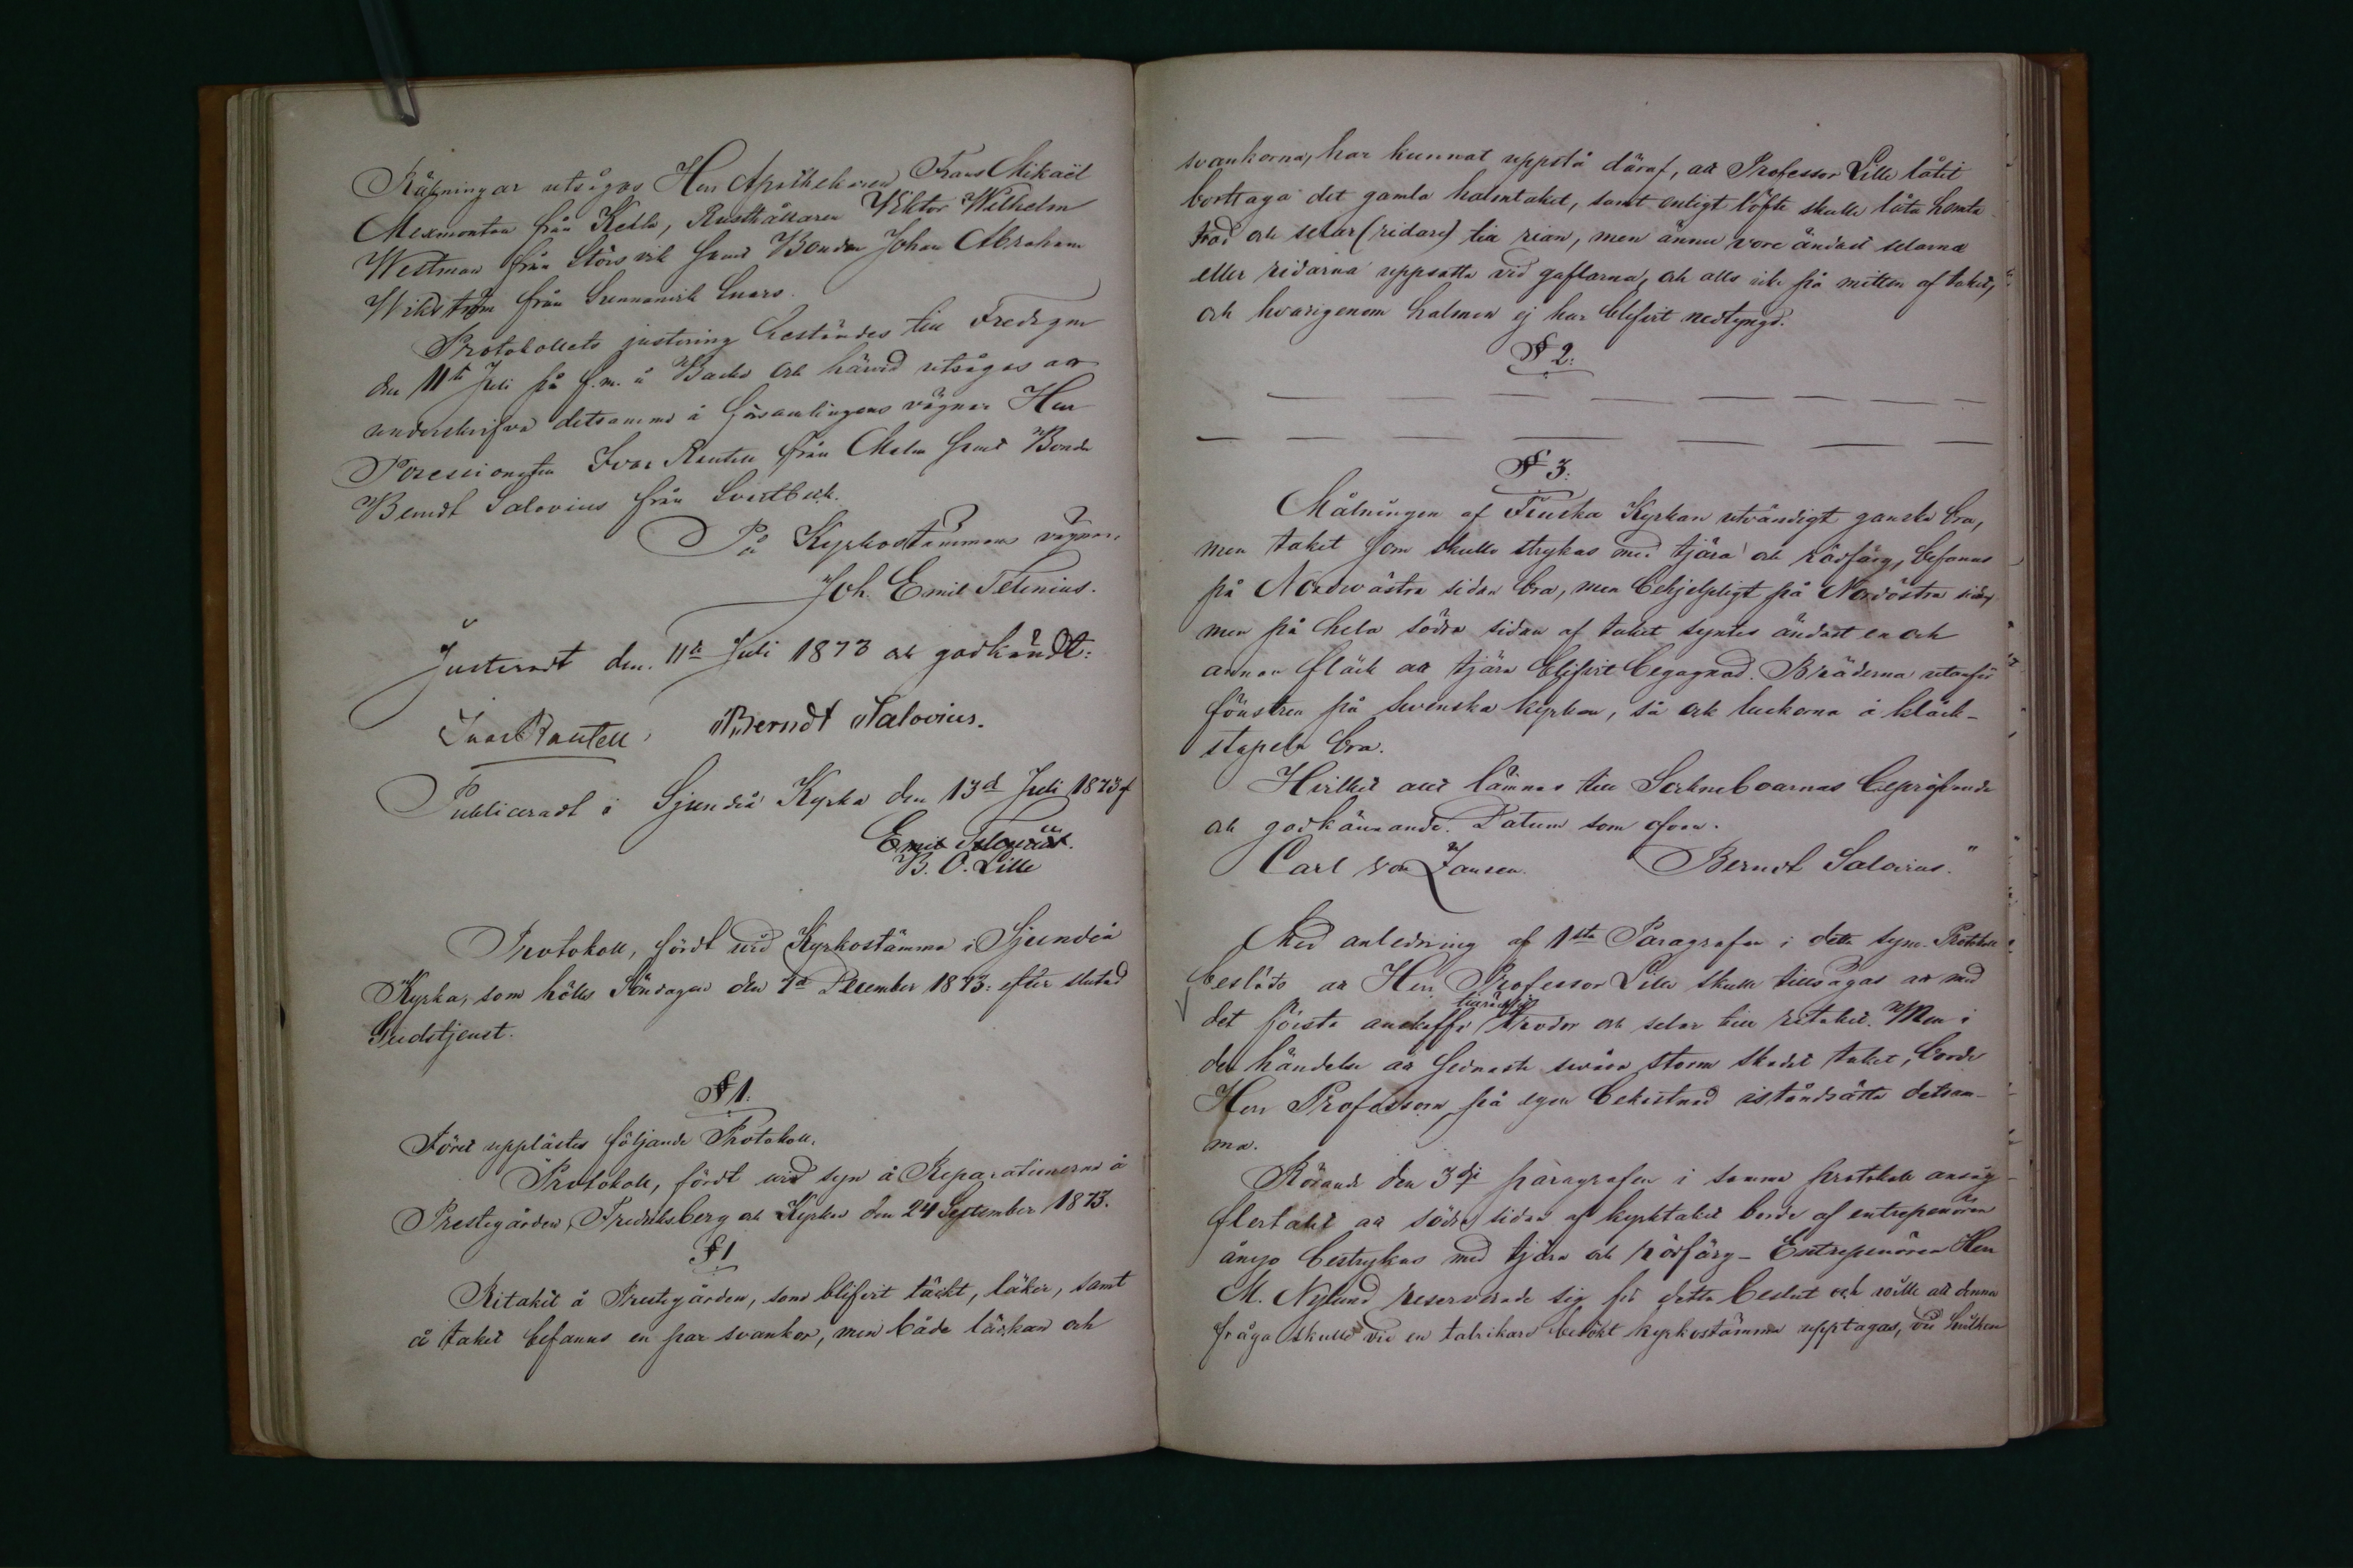 Räkningar utsågos Herr Apothekaren Frans Mikaël
Mexmontan från Kella, Rusthållaren Viktor Wilhelm
Westman från Störsvik samt Bonden Johan Abraham
Wikström från Svennanivik Snars.
Protokollets justering bestämdes till Fredagen
den 11te Juli på f.m. å Backa och härvid utsågos att
underskrifva detsamma å församlingens vägnar Herr
Possessionaten Ivar Rantell från Malm samt Bonden
Berndt Salovius från Svartbäck.
På Kyrkostämmans vägnar.
Joh. Emil Telenius.
Justeradt den 11te Juli 1873 och godkändt:
Ivar Rantell, Berndt Salovius.
Publiceradt i Sjundeå Kyrka den 13de Juli 1873 af
Emil
B. O. Lille
Protokoll, fördt vid Kyrkostämma i Sjundeå
Kyrka, som hölls Söndagen den 7de December 1873: efter slutad
Gudstjenst.
§ 1.
Först upplästes följande Protokoll.
Protokoll, fördt vid syn å Reparationerna å
Prestegården, Fredriksberg och Kyrkan den 24 September 1873.
§ 1
Ritaket å Prestegården, som blifvit täckt, läker, samt
å taket befanns en par svankor, men både läckan och
svankorna, har kunnat uppstå däraf, att Professor Lille låtit
borttaga det gamla halmtaket, samt enligt löfte skulle låta hemta
trod och selar (ridare) till rian, men ännu vore ändast selarna
eller ridarna uppsatta vid gaflarna, och alls icke på mitten af taket,
och hvarigenom halmen ej har blifvit nedtyngd.
§ 2.
§ 3.
Målningen af Finska Kyrkan utvändigt ganska bra,
men taket som skulle strykas med tjära och rödfärg, befanns
på Nordvästra sidan bra, men behjelpligt på Nordöstra sidan,
men på hela södra sidan af taket syntes ändast en och
annan fläck att tjära blifvit begagnad. Bräderna utanför
fönstren på Svenska kyrkan, så ock luckorna å kläck-
stapeln bra.
Hvilket allt lämnas till Sockneboarnas bepröfvande
och godkännande. Datum som ofvan.
Carl von Jansen. Berndt Salovius."
Med anledning af 1sta Paragrafen i detta syne-Protokoll
beslöts att Herr Professor Lille skulle tillsägas att med
det första anskaffa tillräckligt trodor och selar till ritaket. Men i
den händelse att sednaste svåra storm skadat taket, borde
Herr Professorn på egen bekostnad iståndsätta detsam-
ma.
Rörande den 3dje paragrafen i samma protokoll ansåg
flertalet att södra sidan af kyrktaket borde af entreprenören
ånyo bestrykas med tjära och rödfärg – Entreprenören Herr
M. Nylund reserverade sig för detta beslut och ville att denna
fråga skulle vid en talrikare besökt kyrkostämma upptagas, vid hvilken